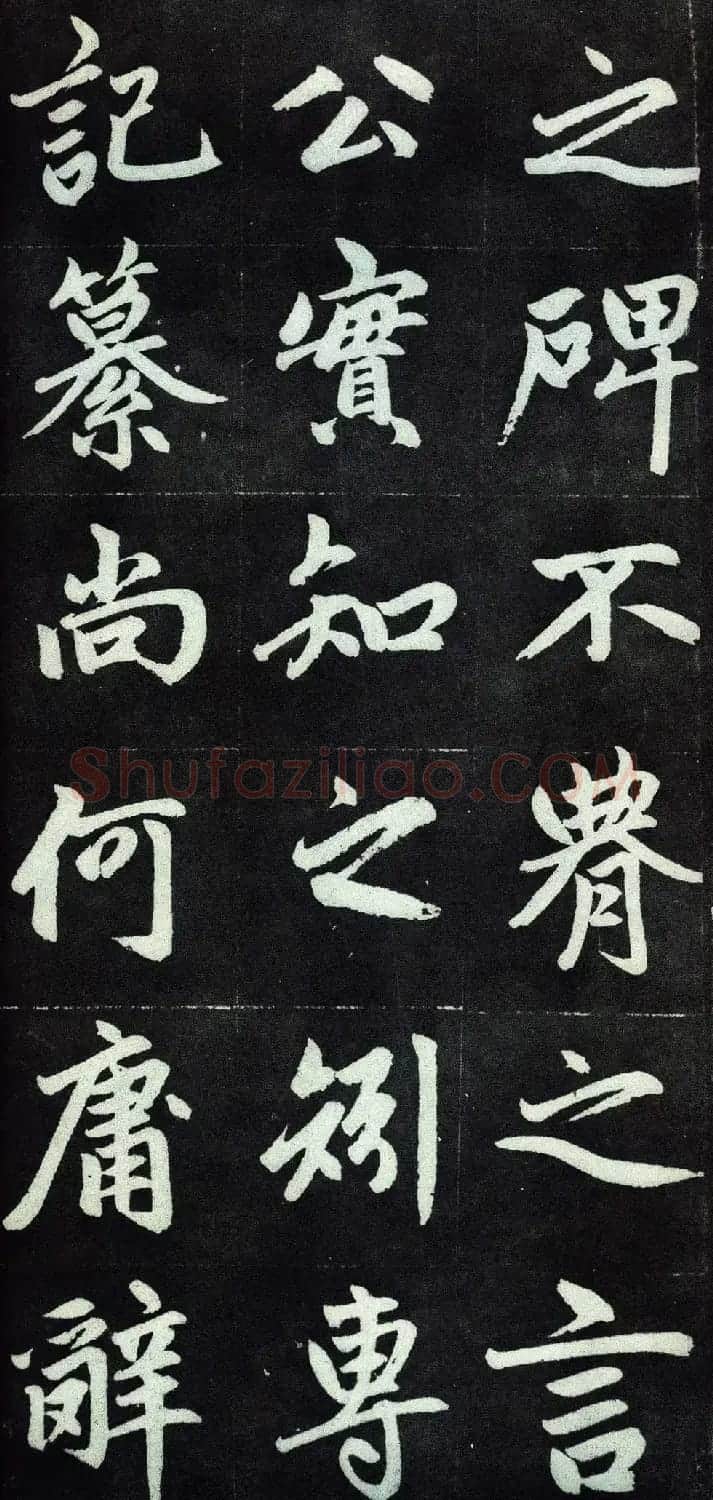 之碑不腆之言
公實知之矧專
記纂尚何庸辭
Shufaziliao.COM